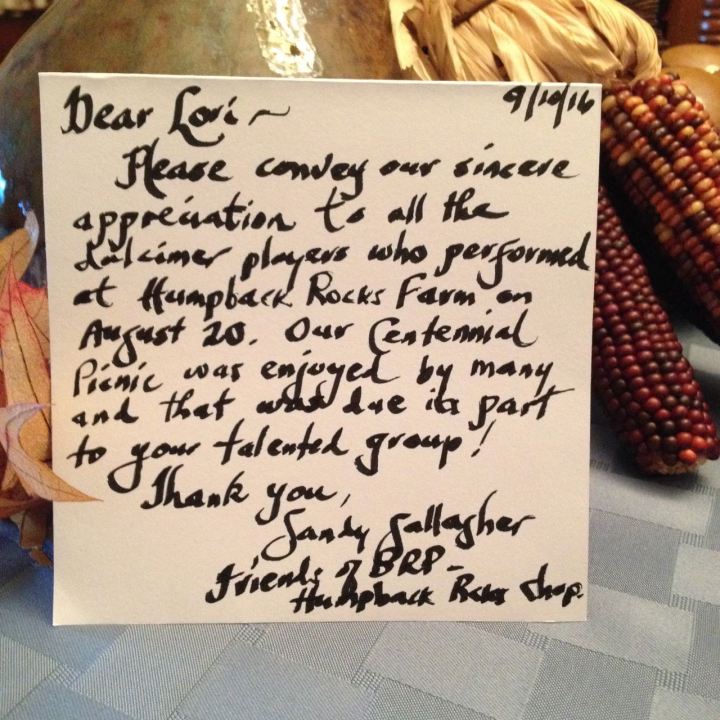 9/10/16
Dear Lori ~
Please convey our sincere
appreciation to all the
dulcimer players who performed
at Humpback Rocks Farm on
August 20. Our Centennial
Picnic was enjoyed by many
and that was due in part
to your talented group!
Thank you,
Sandy Gallagher
Friends of BRP -
Humpback Rocks Chap.